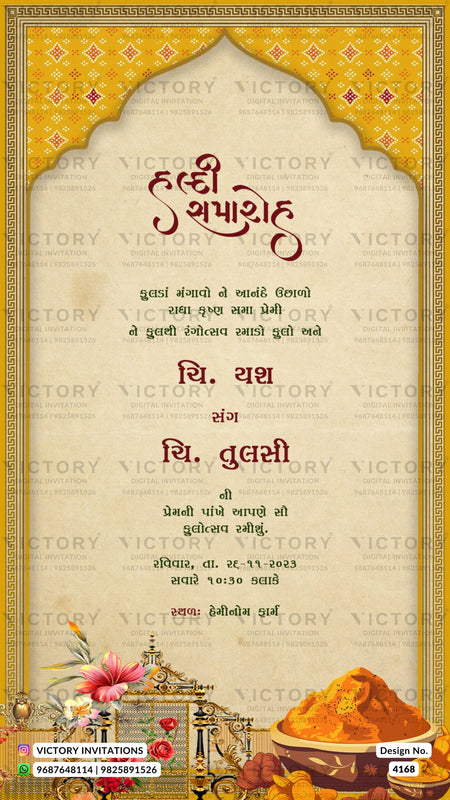 હલ્દી
સમારોહ
ફુલડાં મંગાવો ને આનંદે ઉછાળો
રાધા કૃષ્ણ સમા પ્રેમી
ને ફુલથી રંગોત્સવ રમાડો ફુલો અને
ચિ. યશ
સંગ
ચિ. તુલસી
ની
પ્રેમની પાંખે આપણે સૌ
ફુલોત્સવ રમીશું.
રવિવાર, તા. ૨૬-૧૧-૨૦૨૩
સવારે ૧૦:૩૦ કલાકે
સ્થળ: હેમીનોમ ફાર્મ
VICTORY
DIGITAL INVITATION
9687648114 | 9825891526
VICTORY INVITATIONS
9687648114 | 9825891526
Design No.
4168